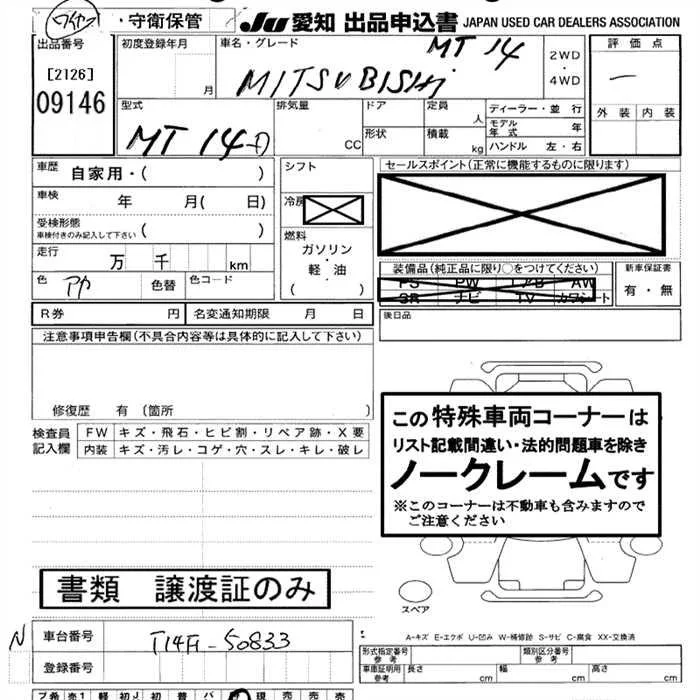 ワイヤン ・守衛保管 JU 愛知 出品申込書 JAPAN USED CAR DEALERS ASSOCIATION
出品番号 初度登録年月 車名・グレード MT 14 2WD ・ 4WD 評価点
[2126] 月 MITSUBISHI －
09146 型式 排気量 ドア 定員 人 ディーラー・並 行 外装 内装
MT 14-D CC 形状 積載 kg モデル年式 年
ハンドル 左・右
車歴 自家用・( ) シフト セールスポイント(正常に機能するものに限ります)
車検 年 月( 日) 冷房
受検形態 ( )
車検付きのみ記入して下さい
燃料
走行 万 千 km ガソリン
・
軽・油
( )
装備品(純正品に限り○をつけてください) 新車保証書
PS PW エアB AW 有・無
SR ナビ TV カワシート
色 アカ 色替 色コード
R券 円 名変通知期限 月 日 後日品
注意事項申告欄(不具合内容等は具体的に記入して下さい)
修復歴 有 (箇所 )
検査員記入欄 FW キズ・飛石・ヒビ割・リペア跡・X要
内装 キズ・汚レ・コゲ・穴・スレ・キレ・破レ
この特殊車両コーナーは
リスト記載間違い・法的問題車を除き
ノークレームです
※このコーナーは不動車も含みますので
ご注意ください
書類 譲渡証のみ
スペア
A-キズ E-エクボ U-凹み W-補修跡 S-サビ C-腐食 XX-交換済
N 車台番号 T14F-50833
登録番号
形式指定番号 参考 類別区分番号 参考
車車証明用 参考 長さ cm 幅 cm 高さ cm